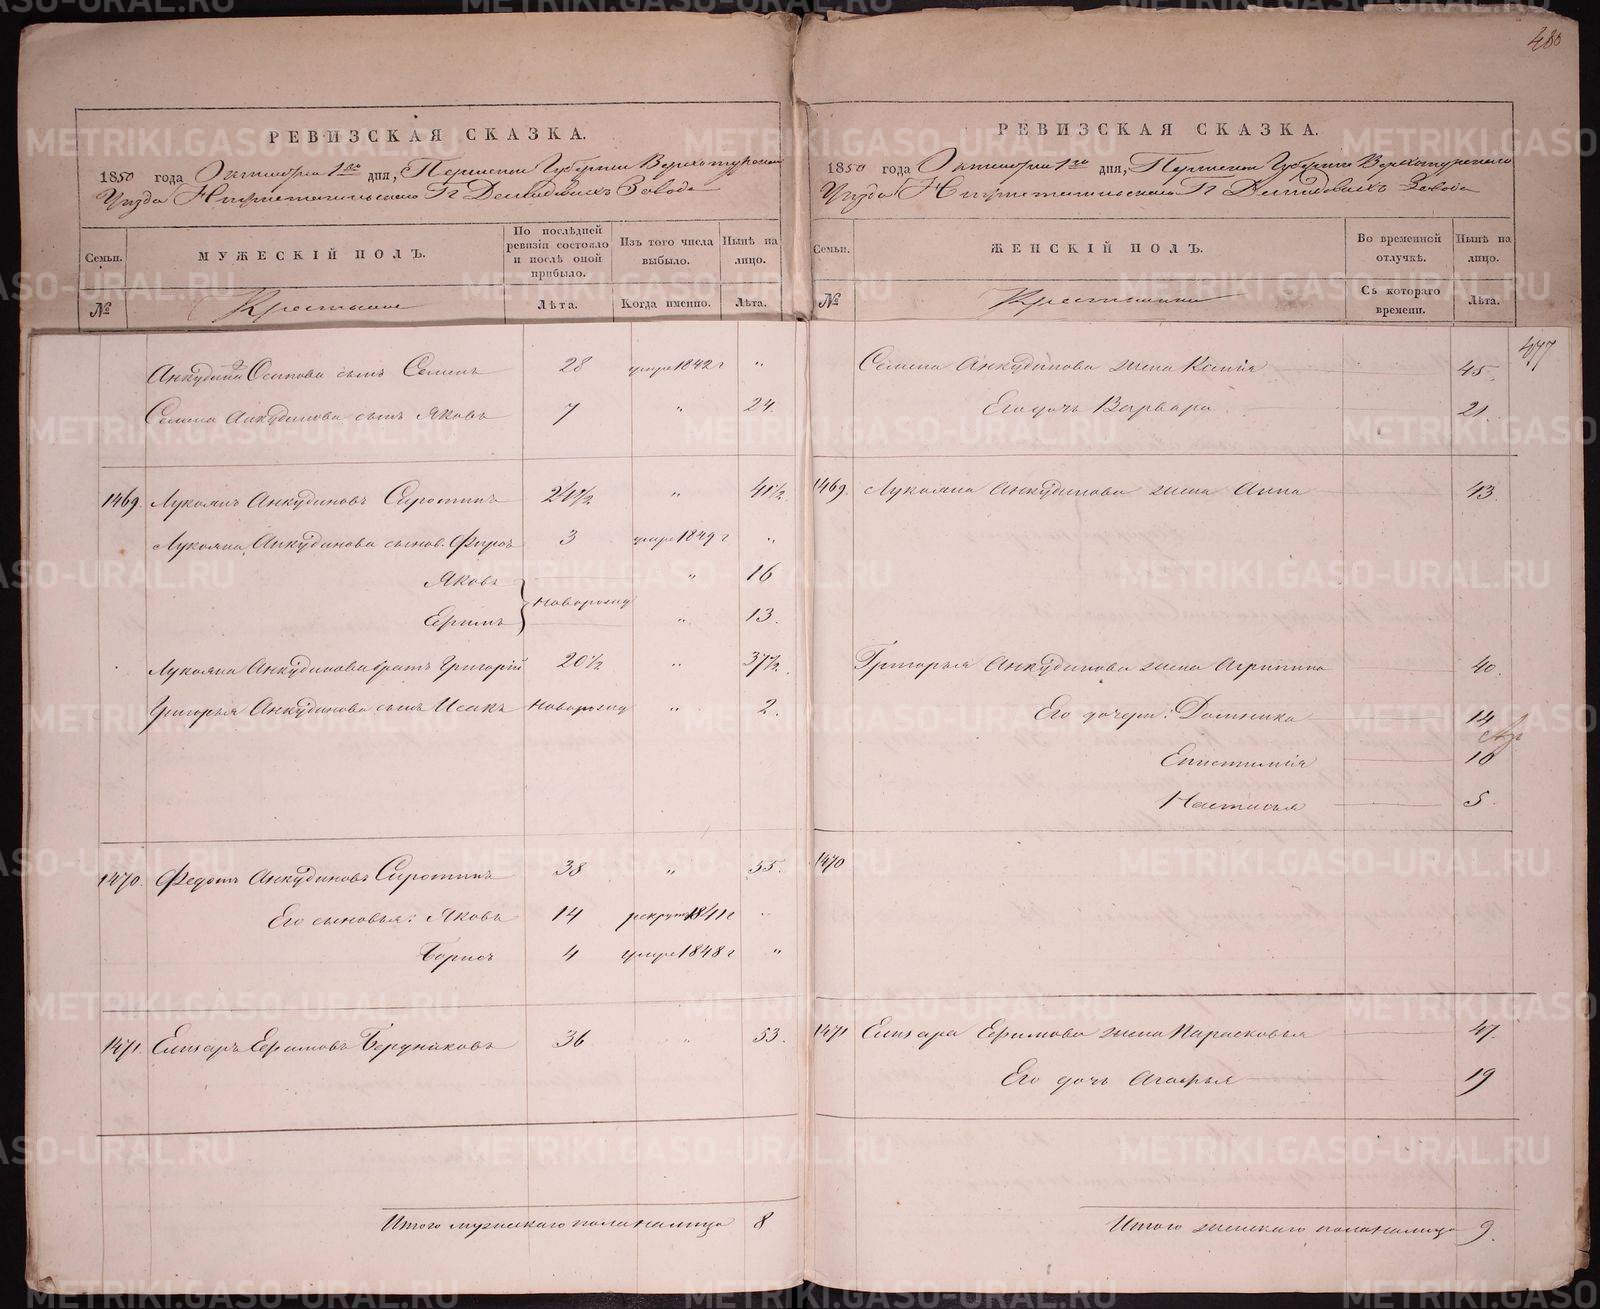 480
РЕВИЗСКАЯ СКАЗКА.
1850 года Октября 1го дня, Пермской Губернии Верхотурскаго
Уѣзда Нижнетагильскаго Гг Демидовыхъ Завода
Семьи. МУЖЕСКІЙ ПОЛЪ. По послѣдней ревизіи состояло и послѣ оной прибыло. Изъ того числа выбыло. Нынѣ на лицо.
№ Крестьяне Лѣта. Когда именно. Лѣта.
Анкудина Осипова сынъ Семенъ 28 умре 1842 г "
Семена Анкудинова сынъ Яковъ 7 " 24.
1469. Лукоянъ Анкудиновъ Сиротинъ 24 1/2 " 41 1/2
Лукояна Анкудинова сынов. 3 умре 1849 г "
Яковъ " 16
новорожд
Ефимъ " 13.
Лукояна Анкудинова братъ Григорій 20 1/2 " 37 1/2.
Григорья Анкудинова сынъ Исакъ новорожд " 2.
1470. Федотъ Анкудиновъ Сиротинъ 38 " 55.
Его сыновья: Яковъ 14 рекрут 1841 г "
Борисъ 4 умре 1848 г "
1471. Елизаръ Ефимовъ Бердниковъ 36 " 53.
Итого мужескаго пола налицо 8
РЕВИЗСКАЯ СКАЗКА.
1850 года Октября 1го дня, Пермской Губерніи Верхотурскаго
Уѣзда Нижнетагильскаго Гг Демидовыхъ Завода
Семьи. ЖЕНСКІЙ ПОЛЪ. Во временной отлучкѣ. Нынѣ на лицо.
№ Крестьянки Съ котораго времени. Лѣта.
477
Семена Анкудинова жена Ксенія 45.
Его дочь Варвара 21.
1469. Лукояна Анкудинова жена Анна 43.
Григорья Анкудинова жена Агрипина 40.
Его дочери: Домника 14
Епистимія 10
Настасья 5.
1470
1471 Елизара Ефимова жена Парасковья 47.
Его дочь Агафья 19
Итого женскаго пола налицо 9.
METRIKI.GASO-URAL.RU